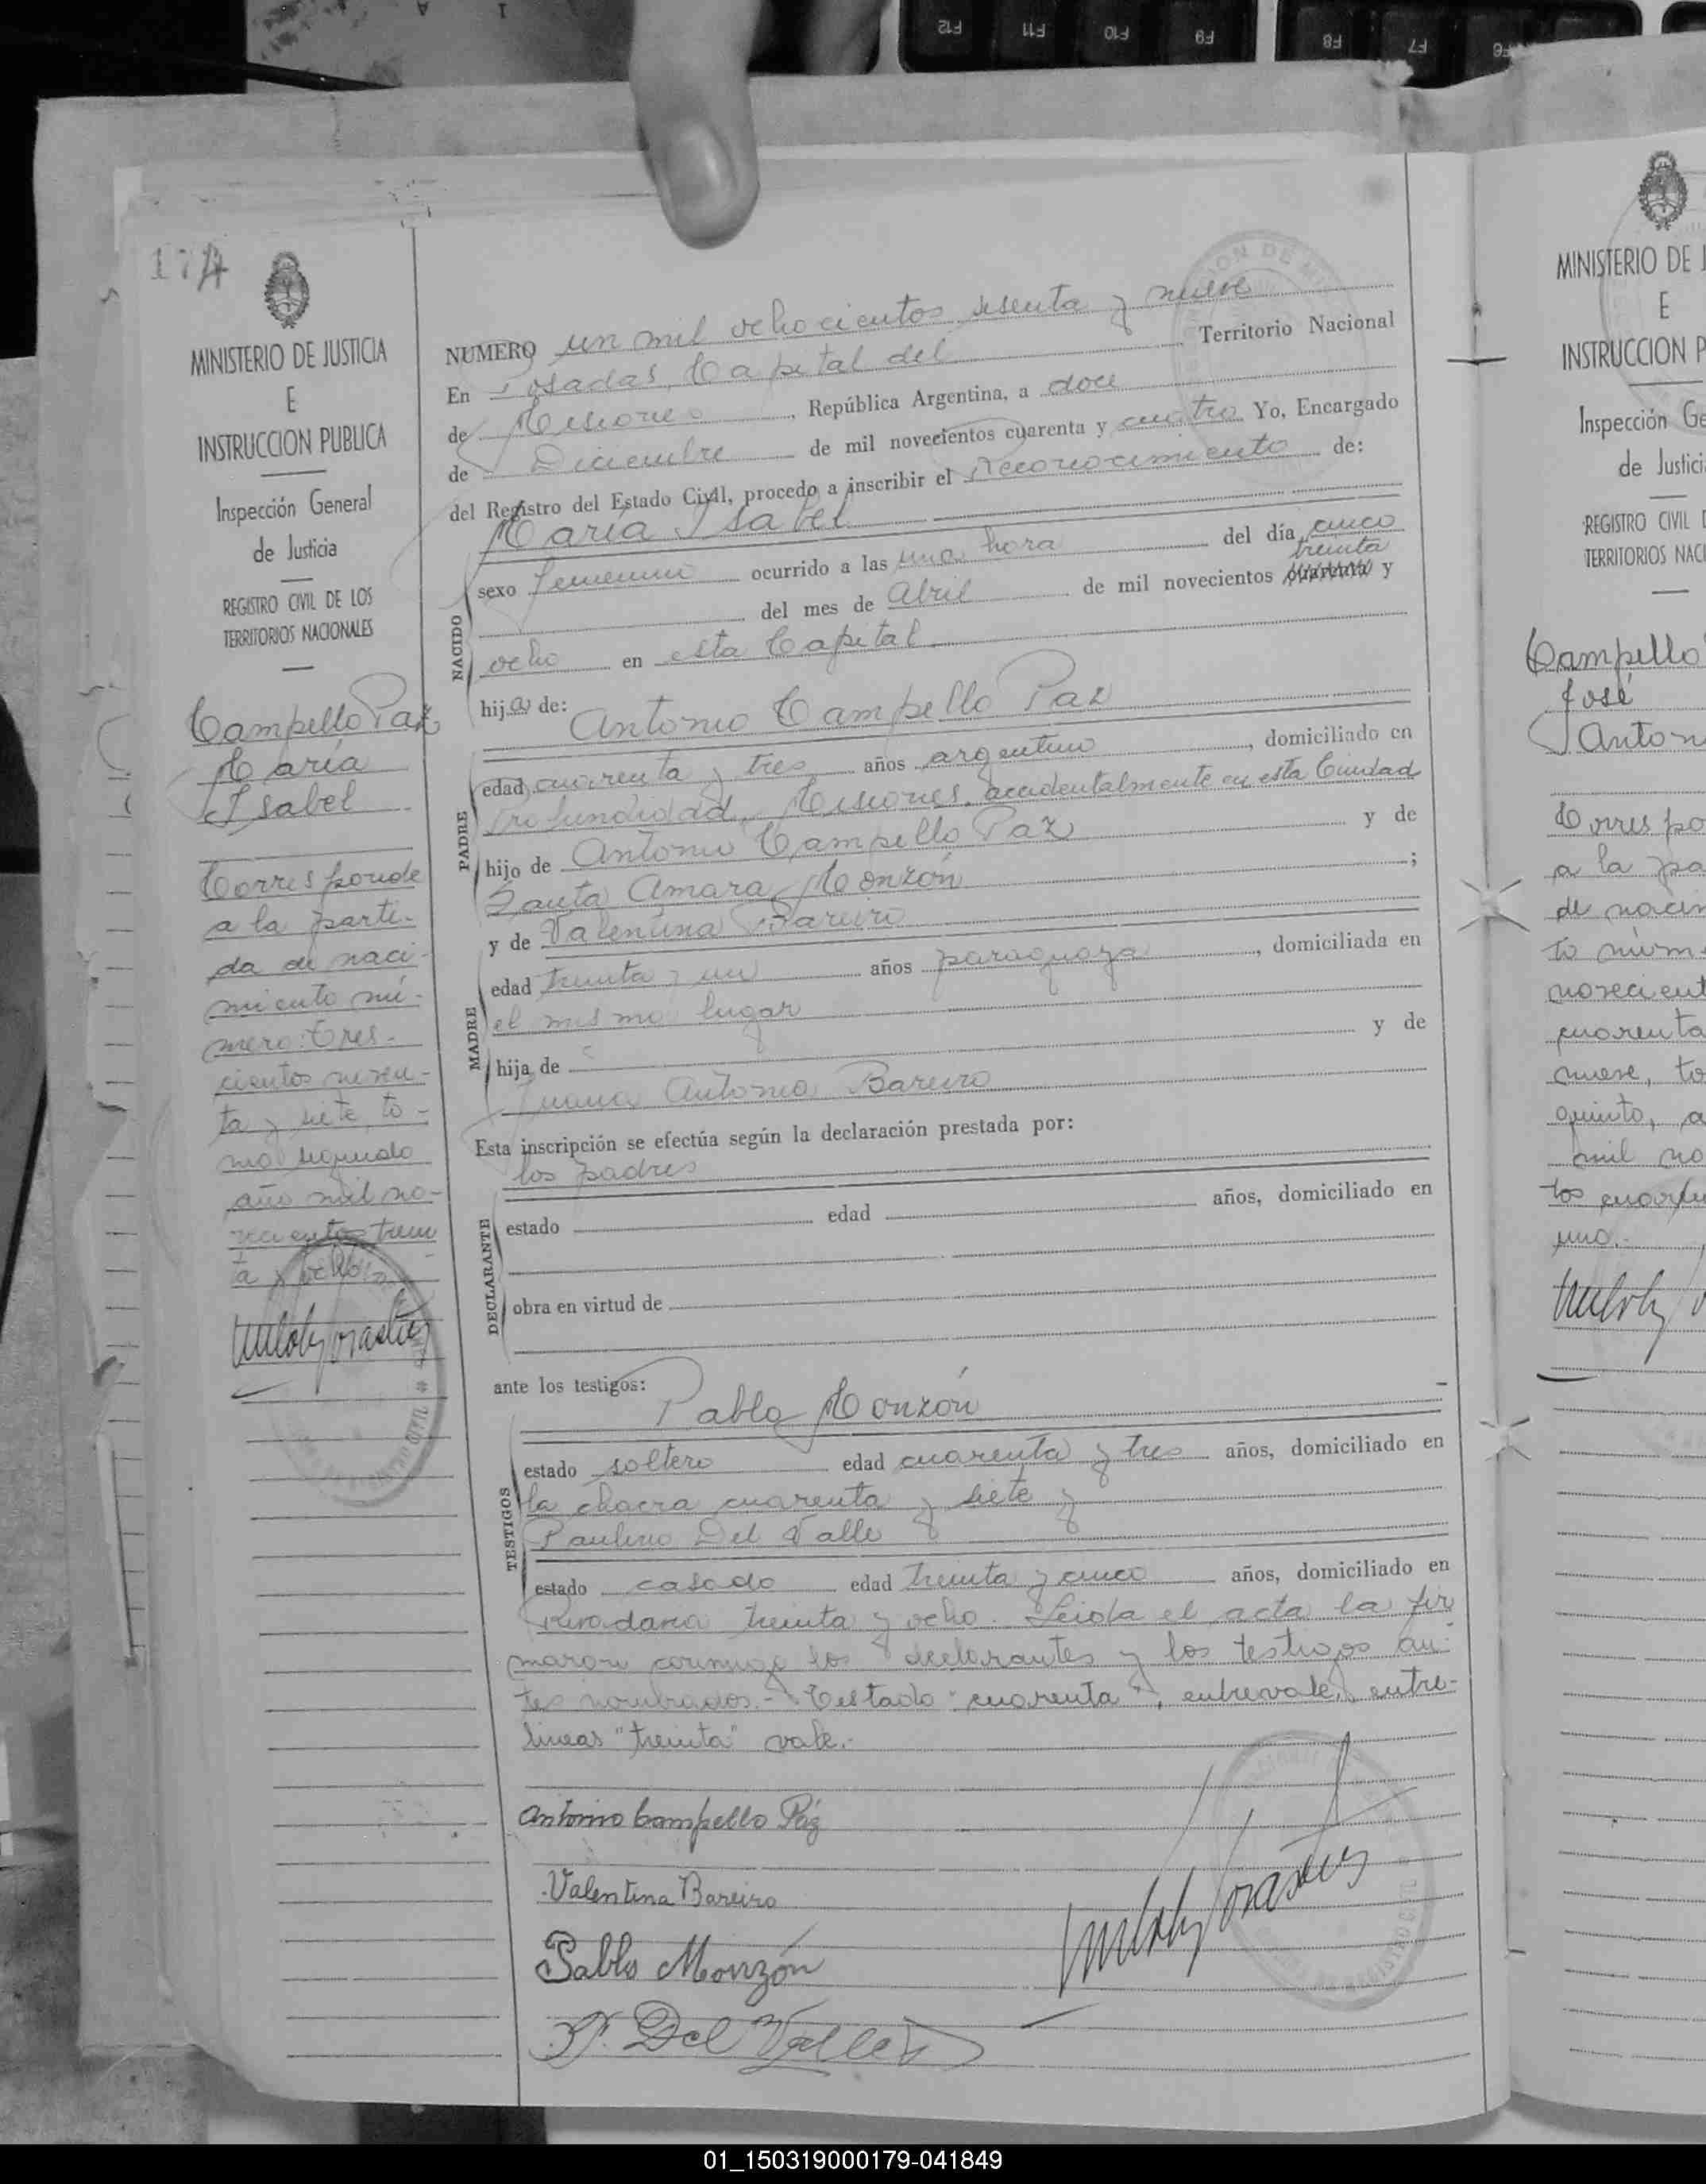 F12 F11 F10 F9 F8 F7 F6
174
MINISTERIO DE JUSTICIA
E
INSTRUCCION PUBLICA
Inspección General
de Justicia
REGISTRO CIVIL DE LOS
TERRITORIOS NACIONALES
Campello Paz
María
Isabel
Corresponde
a la parti-
da de naci-
miento nú-
mero: tres-
cientos noven-
ta y siete, to-
mo segundo
año mil no-
vecientos trein
ta y ocho.
NUMERO un mil ochocientos sesenta y nueve
En Posadas, Capital del Territorio Nacional
de Misiones, República Argentina, a doce
de Diciembre de mil novecientos cuarenta y cuatro Yo, Encargado
del Registro del Estado Civil, procedo a inscribir el Reconocimiento de:
María Isabel
NACIDO
sexo femenino ocurrido a las una hora del día cinco
treinta
del mes de Abril de mil novecientos cuarenta y
ocho en esta Capital
hija de: Antonio Campello Paz
PADRE
edad cuarenta y tres años argentino, domiciliado en
Profundidad, Misiones, accidentalmente en esta Ciudad
hijo de Antonio Campello Paz y de
Santa Amara Monzón;
y de Valentina Bareiro
MADRE
edad treinta y un años paraguaya, domiciliada en
el mismo lugar
hija de y de
Juana Antonia Bareiro
Esta inscripción se efectúa según la declaración prestada por:
los padres
DECLARANTE
estado edad años, domiciliado en
obra en virtud de
ante los testigos:
Pablo Monzón
TESTIGOS
estado soltero edad cuarenta y tres años, domiciliado en
la chacra cuarenta y siete y
Paulino Del Valle
estado casado edad treinta y cinco años, domiciliado en
Rivadavia treinta y ocho. Leida el acta la fir
maron conmigo los declarantes y los testigos an-
tes nombrados.- Testado "cuarenta", entrevale, entre-
lineas "treinta" vale.-
Antonio Campello Páz
Valentina Bareiro
Pablo Monzón
P. Del Valle
MINISTERIO DE J
E
INSTRUCCION P
Inspección Ge
de Justici
REGISTRO CIVIL D
TERRITORIOS NACI
Campello
José
Anton
Corres po
a la pa
de nacim
to núme
novecient
cuarenta
nueve, to
quinto, a
mil no
tos cuaren
uno.-
01_150319000179-041849